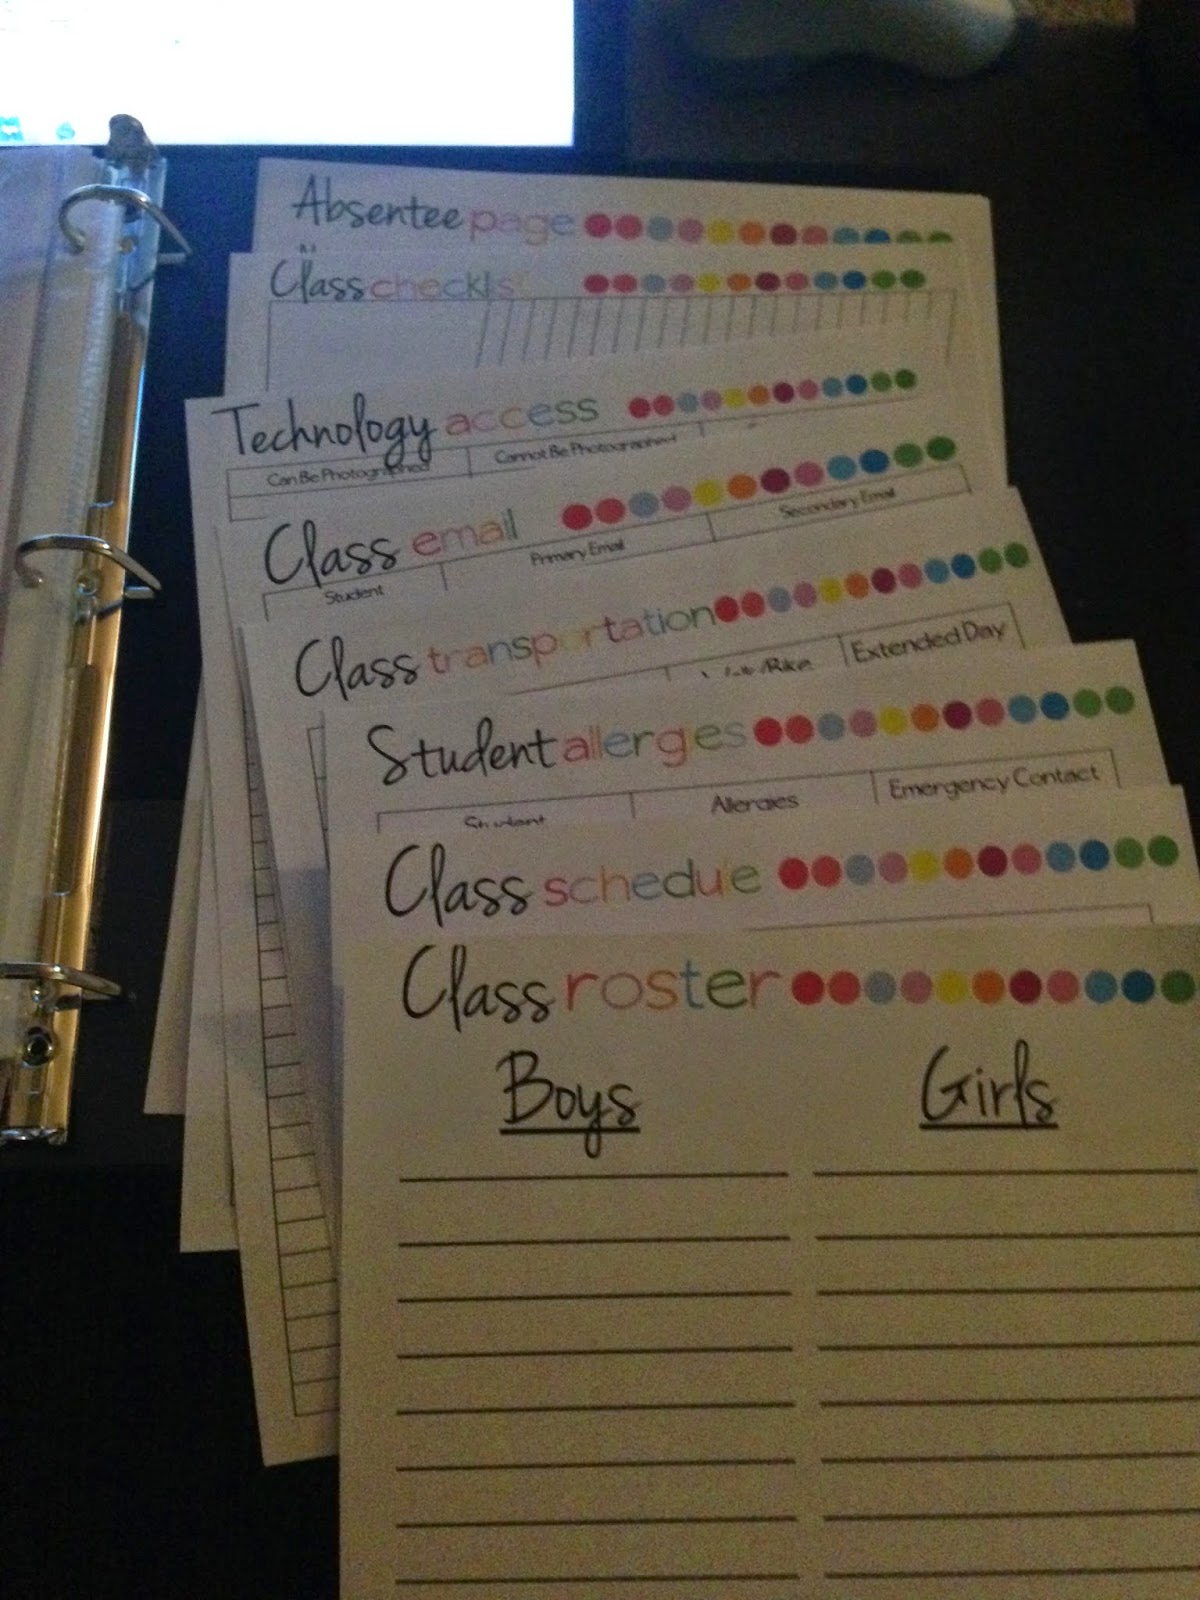 Absentee page
Class checklis
Technology access
Can Be Photographed Cannot Be Photographed
Class email
Student Primary Email Secondary Email
Class transportation
/Bike Extended Day
Student allerges
Student Allergies Emergency Contact
Class schedule
Class roster
Boys Girls